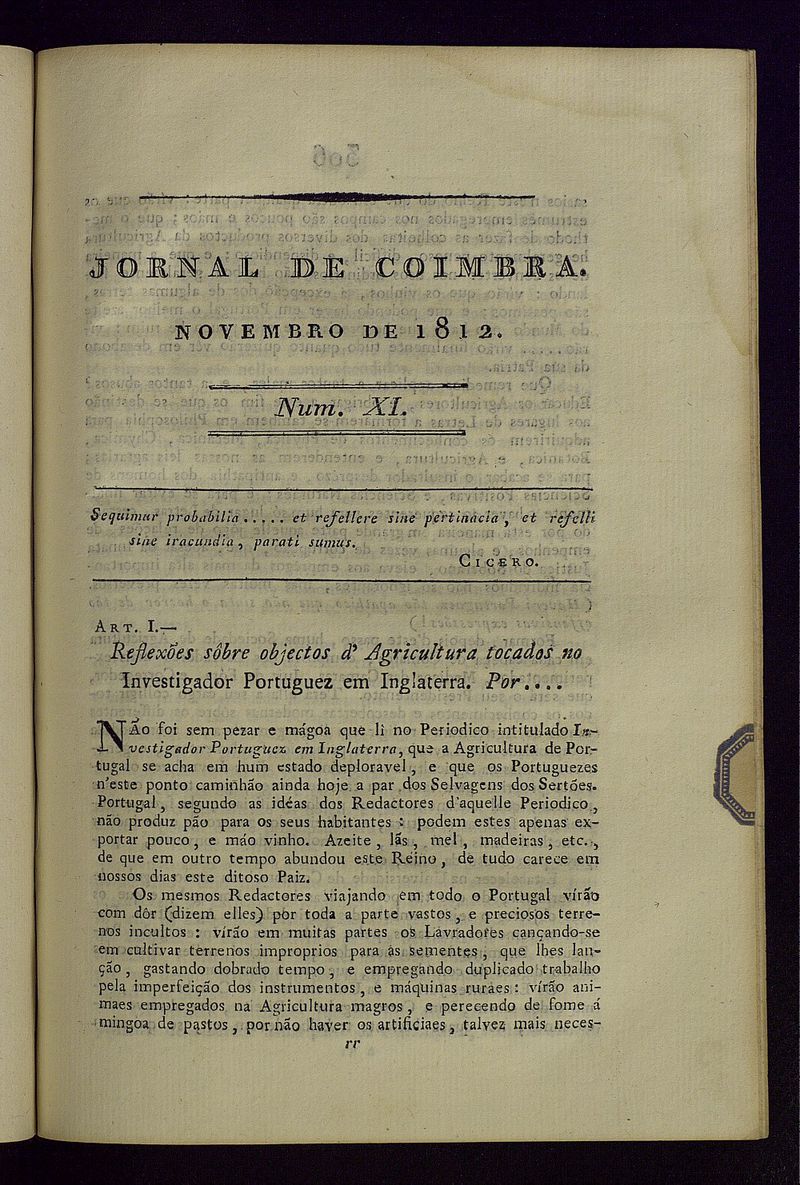 JORNAL DE COIMBRA.
NOVEMBRO DE 1812.
Num. XI.
Sequimur probabilia..... et refellere sine pertinacia, et refelli
sine iracundia, parati sumus.
CICERO.
ART. I.—
Reflexões sôbre objectos d' Agricultura tocados no
Investigador Portuguez em Inglaterra. Por....
NÃo foi sem pezar e mágoa que li no Periodico intitulado In-
vestigador Portuguez em Inglaterra, que a Agricultura de Por-
tugal se acha em hum estado deploravel, e que os Portuguezes
n'este ponto caminhão ainda hoje a par dos Selvagens dos Sertões.
Portugal, segundo as idéas dos Redactores d'aquelle Periodico,
não produz pão para os seus habitantes: podem estes apenas ex-
portar pouco, e máo vinho. Azeite, lãs, mel, madeiras, etc.,
de que em outro tempo abundou este Reino, de tudo carece em
nossos dias este ditoso Paiz.
Os mesmos Redactores viajando em todo o Portugal vírão
com dôr (dizem elles) por toda a parte vastos, e preciosos terre-
nos incultos: vírão em muitas partes os Lavradores cançando-se
em cultivar terrenos improprios para as sementes, que lhes lan-
ção, gastando dobrado tempo, e empregando duplicado trabalho
pela imperfeição dos instrumentos, e máquinas ruráes: vírão ani-
maes empregados na Agricultura magros, e perecendo de fome á
mingoa de pastos, por não haver os artificiaes, talvez mais neces-
rr